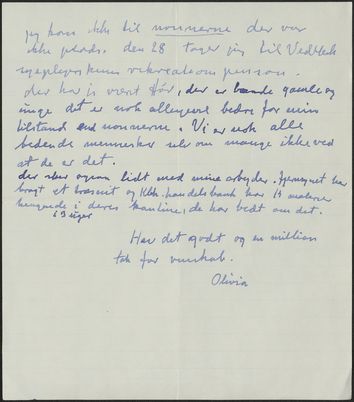 jeg kom ikke til nonnerne der var
ikke plads. den 28 tager jeg til Vedbæk
sygeplejerskernes rekreations pension.
der har jeg været før, der er baade gamle og
unge det er nok alligevel bedre for min
tilstand end nonnerne. Vi er nok alle
bedende mennesker selv om mange ikke ved
at de er det.
der sker ogsaa lidt med mine arbejder. fjernsynet har
bragt et transmit og Kbh. handelsbank har 14 malerier
hængende i deres kantine, de har bedt om det.
i 3 uger
Hav det godt og en million
tak for venskab.
Olivia